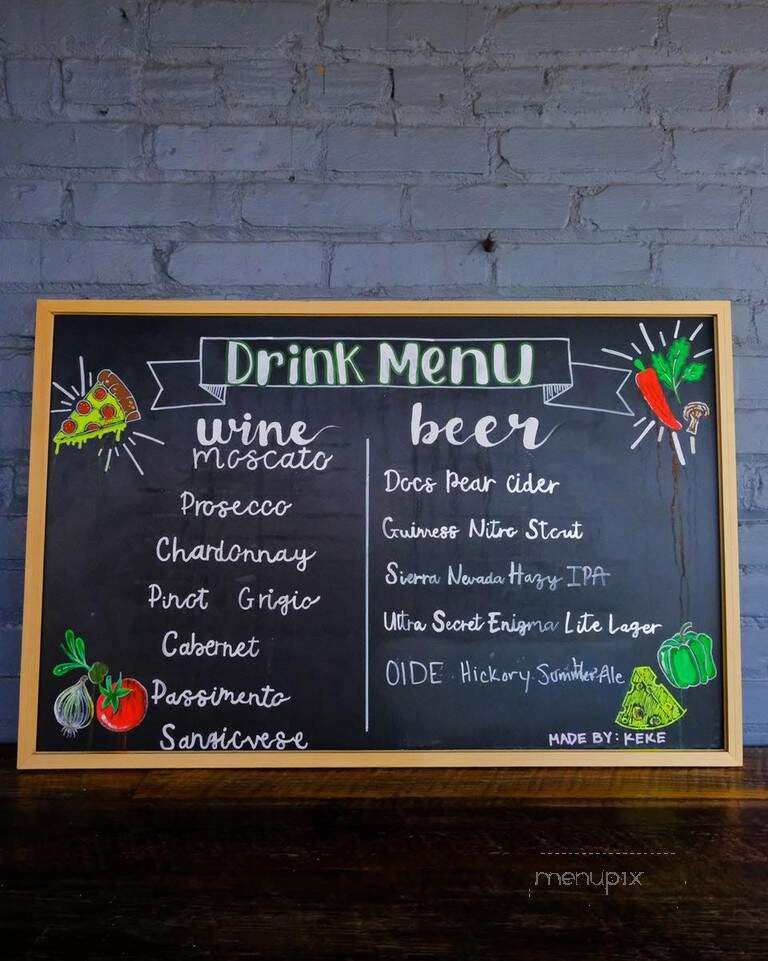 Drink Menu
wine
Moscato
Prosecco
Chardonnay
Pinot Grigio
Cabernet
Passimento
Sangicvese
beer
Docs Pear Cider
Guinness Nitro Stout
Sierra Nevada Hazy IPA
Ultra Secret Enigma Lite Lager
OlDE Hickory Summer Ale
MADE BY: KEKE
menupix